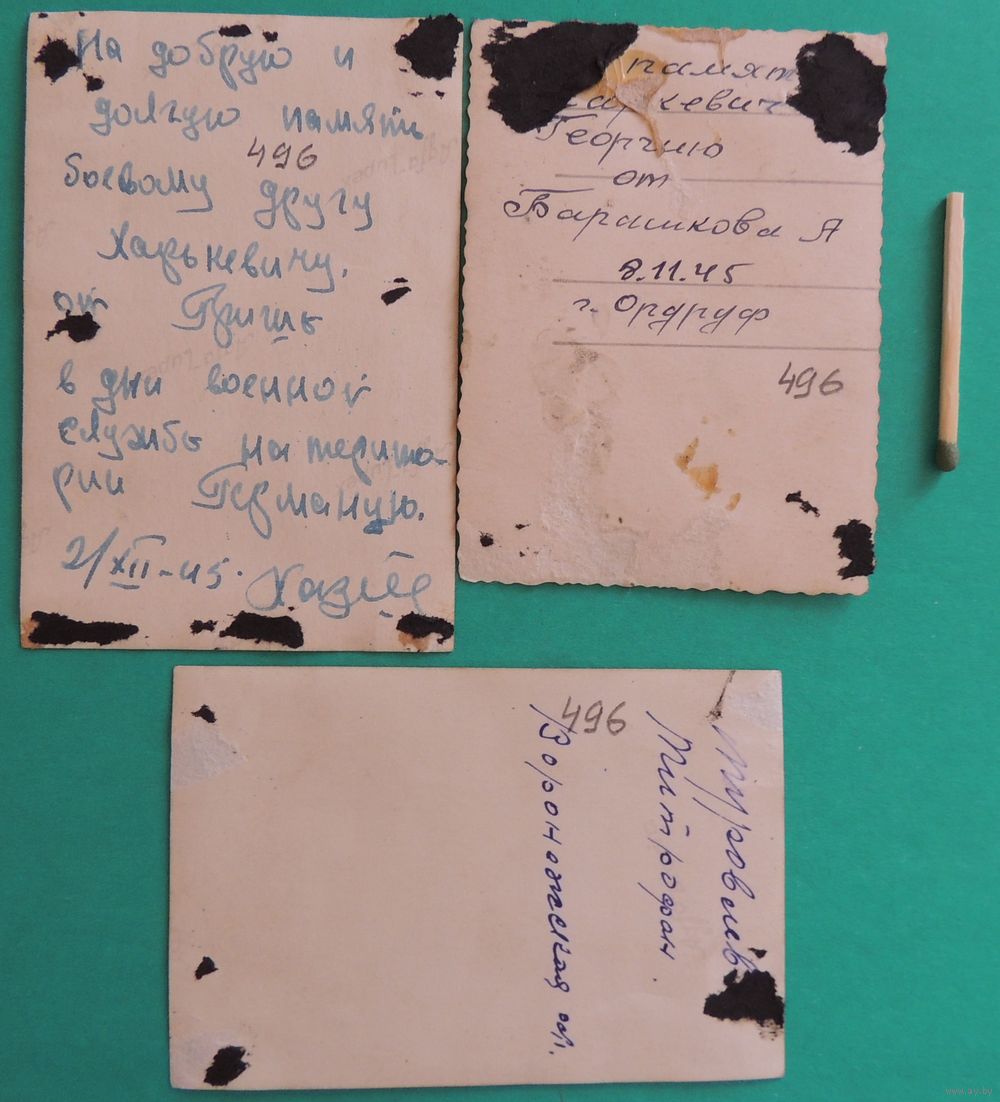 На добрую и
долгую память
496
боевому другу
Харьневичу.
от Гриши
в дни военной
службы на терито-
рии Германию.
2/XII-45.
памят
Георгию
от
Барашкова А
8.11.45
г. Ордруф
496
496
Митрофан.
Воронежская обл.
www.ay.by